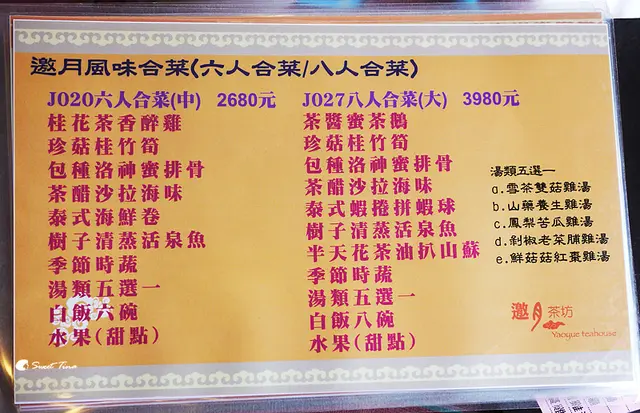 邀月風味合菜(六人合菜/八人合菜)
J020六人合菜(中) 2680元
桂花茶香醉雞
珍菇桂竹筍
包種洛神蜜排骨
茶醋沙拉海味
泰式海鮮卷
樹子清蒸活泉魚
季節時蔬
湯類五選一
白飯六碗
水果(甜點)
J027八人合菜(大) 3980元
茶醬蜜茶鵝
珍菇桂竹筍
包種洛神蜜排骨
茶醋沙拉海味
泰式蝦捲拼蝦球
樹子清蒸活泉魚
半天花茶油扒山蘇
季節時蔬
湯類五選一
白飯八碗
水果(甜點)
湯類五選一
a.雪茶雙菇雞湯
b.山藥養生雞湯
c.鳳梨苦瓜雞湯
d.剁椒老菜脯雞湯
e.鮮菇菇紅棗雞湯
邀月茶坊
Yaoyue teahouse
Sweet Tina